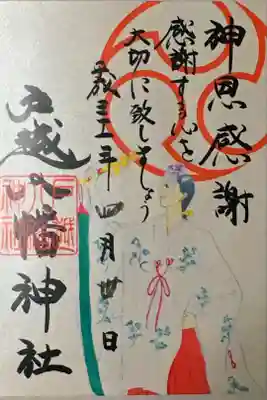 神恩感謝
感謝する心を
大切に致しましょう
平成三十一年四月廿日
戸越八幡神社